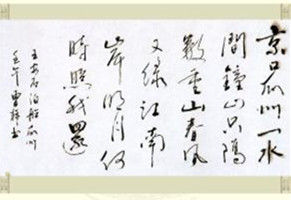 京口瓜州一水
間鐘山只隔
數重山春風
又綠江南
岸明月何
時照我還
王安石泊船瓜州
壬午書